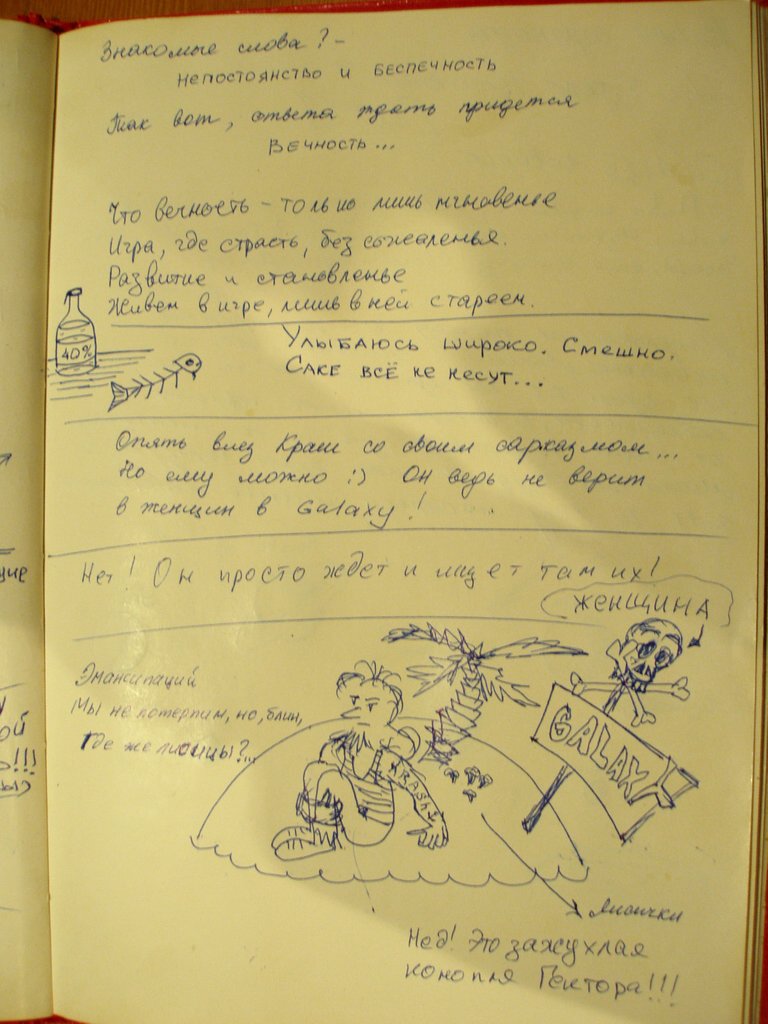 Знакомые слова? -
непостоянство и беспечность
Так вот, ответа ждать придется
Вечность...
Что вечность - только лишь мгновенье
Игра, где страсть, без сожаленья.
Развитие и становленье
Живем в игре, лишь в ней стареем.
40%
Улыбаюсь широко. Смешно.
Саке всё не несут...
Опять влез Краш со своим сарказмом...
Но ему можно :) Он ведь не верит
в женщин в Galaxy!
Нет! Он просто ждет и ищет там их!
женщина
Эмансипаций
Мы не потерпим, но, блин,
Где же
GALAXY
KRASH
Нед! Это зажухлая
конопля Гектора!!!
ой
!!!